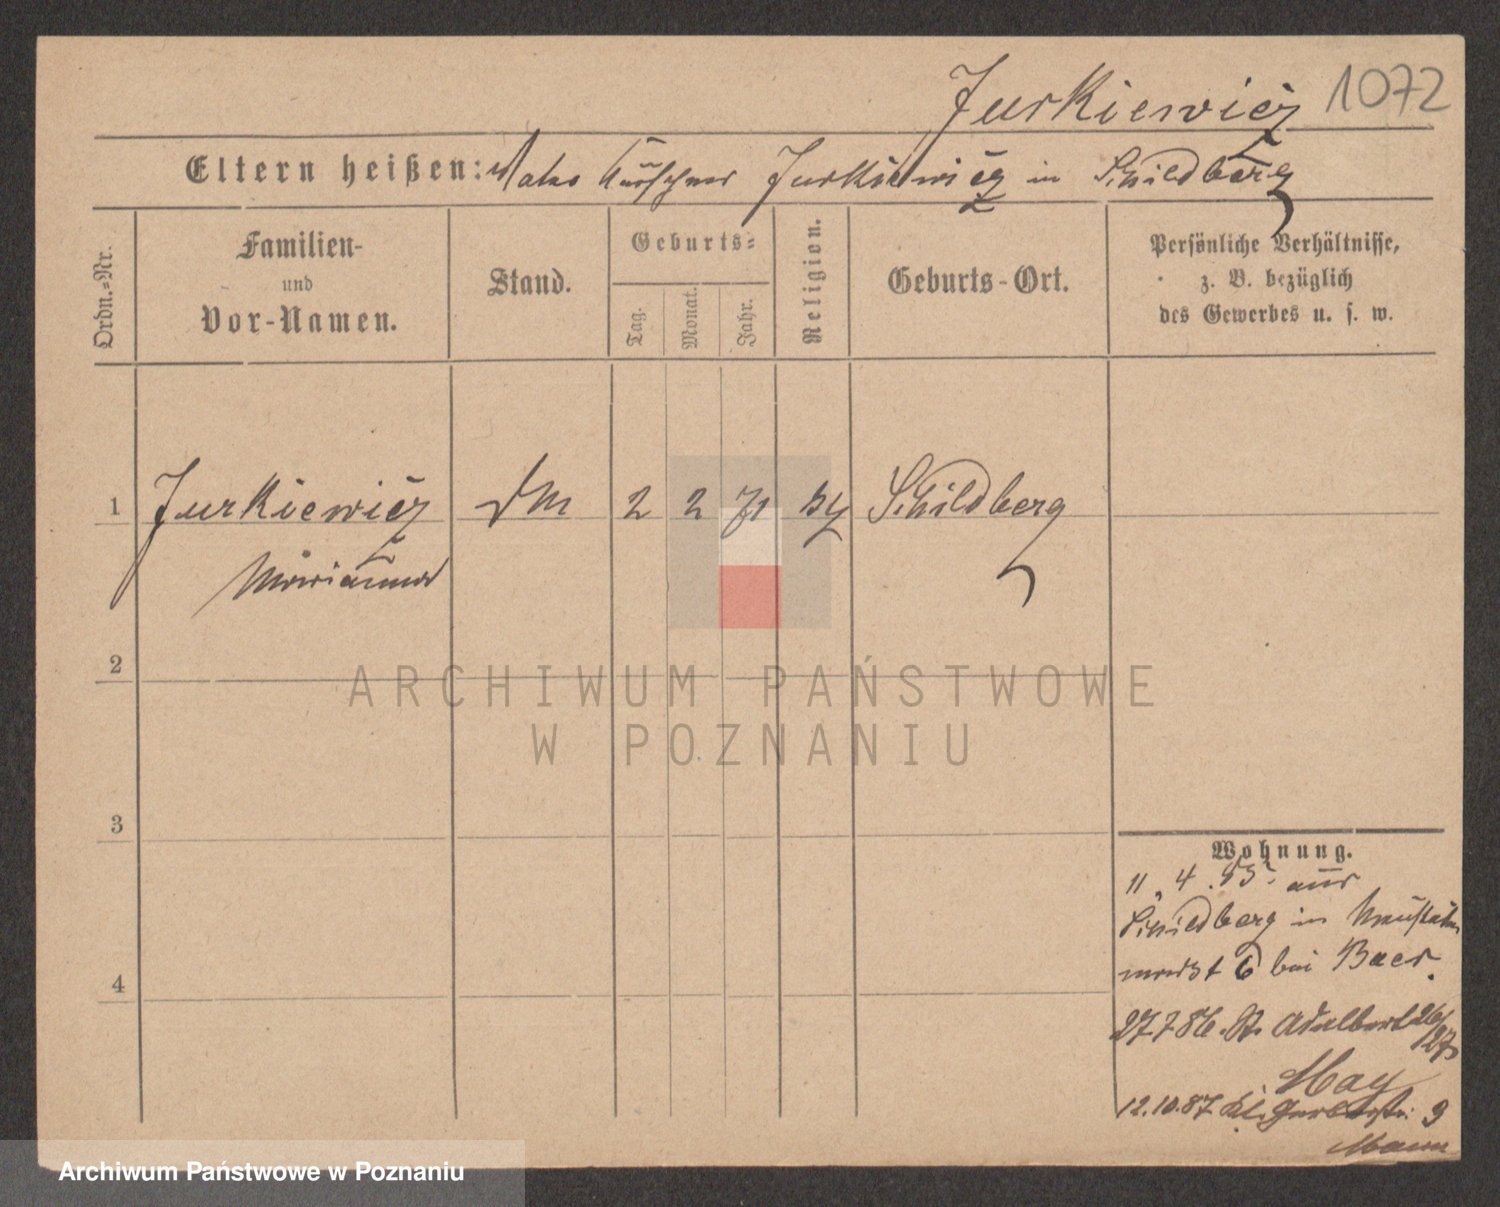 Jurkiewicz 1072
Eltern heißen: Vater Kürschner Jurkiewicz in Schildberg
Ordn.=Nr.
Familien-
und
Vor-Namen.
Stand.
Geburts=
Tag.
Monat.
Jahr.
Religion.
Geburts-Ort.
Persönliche Verhältnisse,
z. B. bezüglich
des Gewerbes u. s. w.
1 Jurkiewicz 2 2 71 Schildberg
Marianna
2
ARCHIWUM PAŃSTWOWE
W POZNANIU
3
4
Wohnung.
11.4.85. aus
Schildberg in
6 bei Baer.
27 7 86. St. Adalbert 26/
27
May
12.10.87 Kl. Gerberstr. 9
Mann
Archiwum Państwowe w Poznaniu